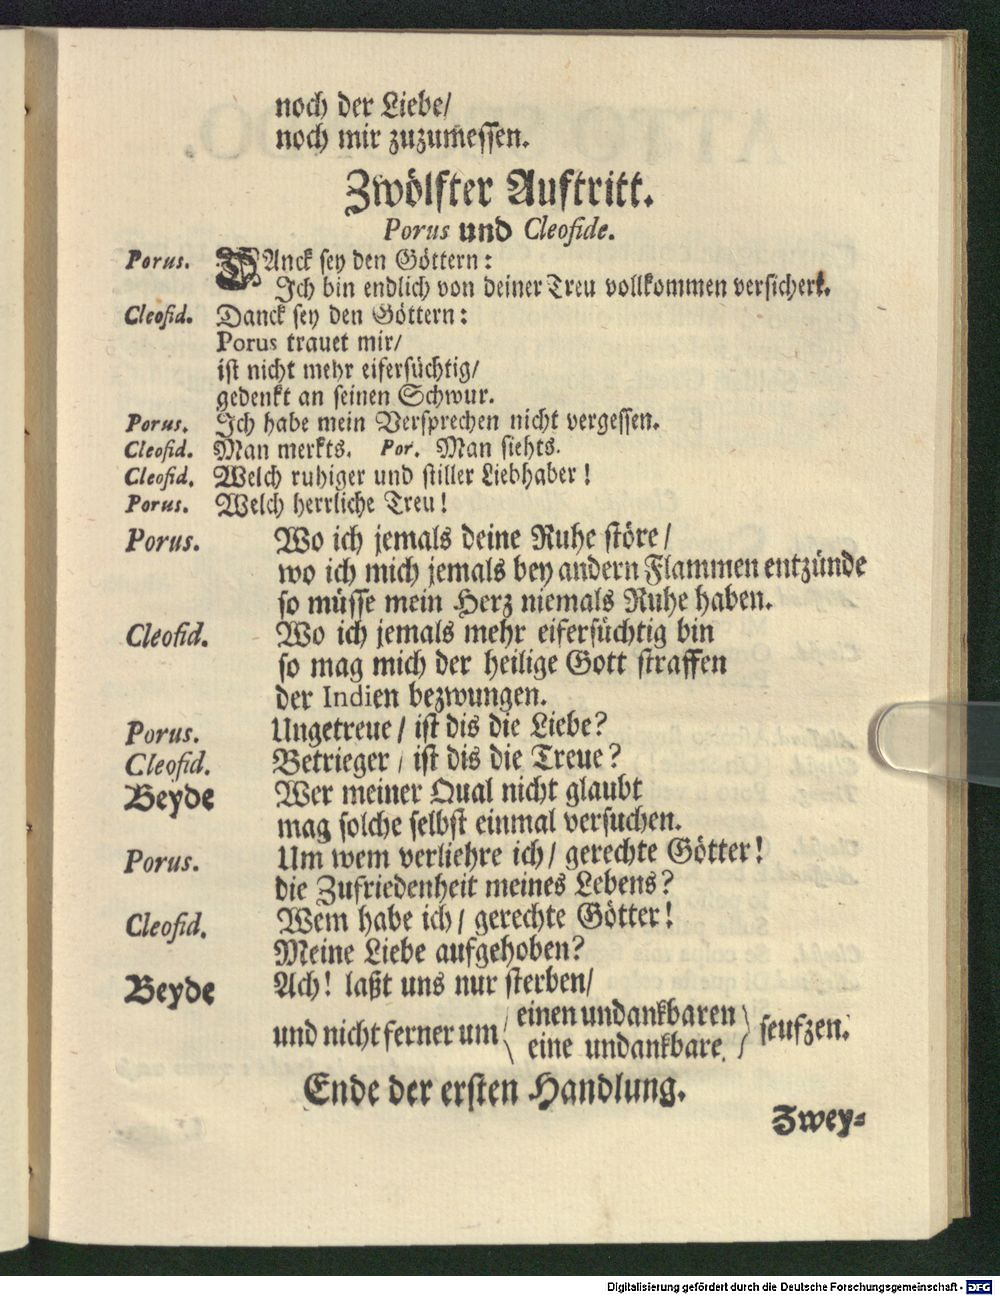 noch der Liebe/
noch mir zuzumessen.
Zwölfter Auftritt.
Porus und Cleofide.
Porus. DAnck sey den Göttern:
Ich bin endlich von deiner Treu vollkommen versichert.
Cleofid. Danck sey den Göttern:
Porus trauet mir/
ist nicht mehr eifersüchtig/
gedenkt an seinen Schwur.
Porus. Ich habe mein Versprechen nicht vergessen.
Cleofid. Man merkts. Por. Man siehts.
Cleofid. Welch ruhiger und stiller Liebhaber!
Porus. Welch herrliche Treu!
Porus. Wo ich jemals deine Ruhe störe/
wo ich mich jemals bey andern Flammen entzünde
so müsse mein Herz niemals Ruhe haben.
Cleofid. Wo ich jemals mehr eifersüchtig bin
so mag mich der heilige Gott straffen
der Indien bezwungen.
Porus. Ungetreue/ ist dis die Liebe?
Cleofid. Betrieger/ ist dis die Treue?
Beyde Wer meiner Qual nicht glaubt
mag solche selbst einmal versuchen.
Porus. Um wem verliehre ich/ gerechte Götter!
die Zufriedenheit meines Lebens?
Cleofid. Wem habe ich/ gerechte Götter!
Meine Liebe aufgehoben?
Beyde Ach! laßt uns nur sterben/
und nicht ferner um (einen undankbaren / eine undankbare.) seufzen.
Ende der ersten Handlung.
Zwey=
Digitalisierung gefördert durch die Deutsche Forschungsgemeinschaft - DFG